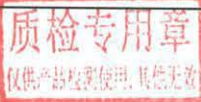 质检专用章
仅供产品检测使用,其他无效